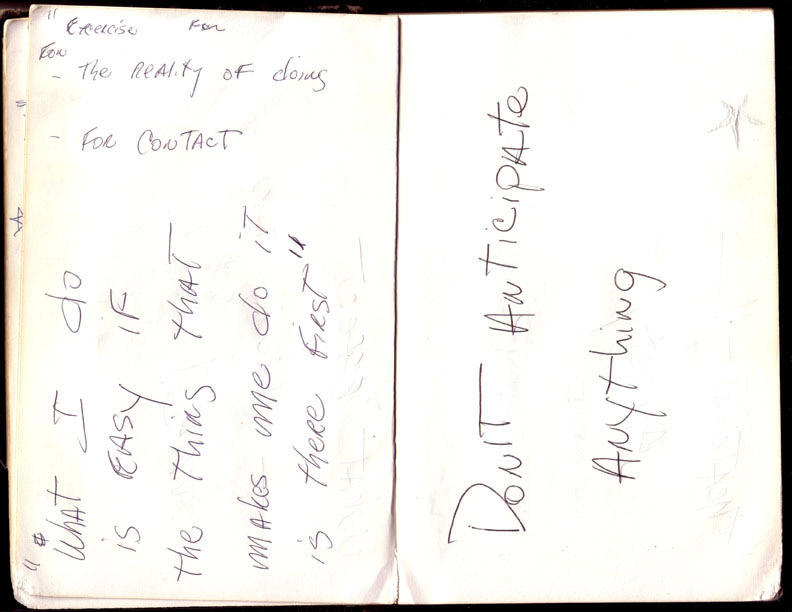 " Exercise For
For
- The REALITY OF doing
- FOR CONTACT
"What I do
is EASY iF
the thing that
makes me do it
is there first"
DON'T ANTiCiPATE
ANYthing